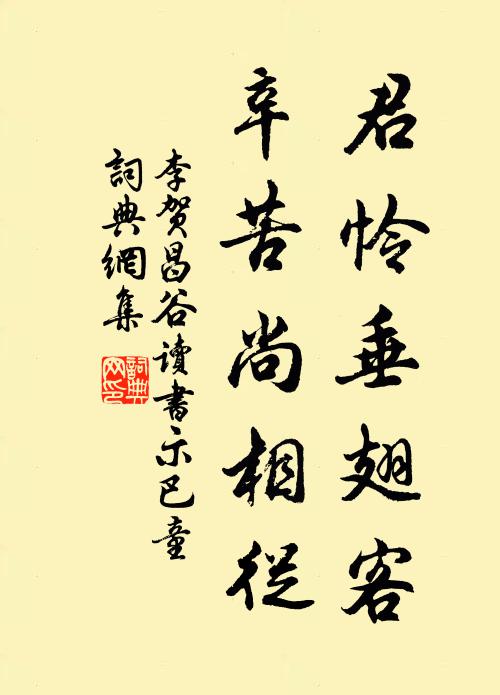 君怜垂翅客
辛苦尚相從
李賀昌谷讀書示巴童
詞典網集
詞典网印